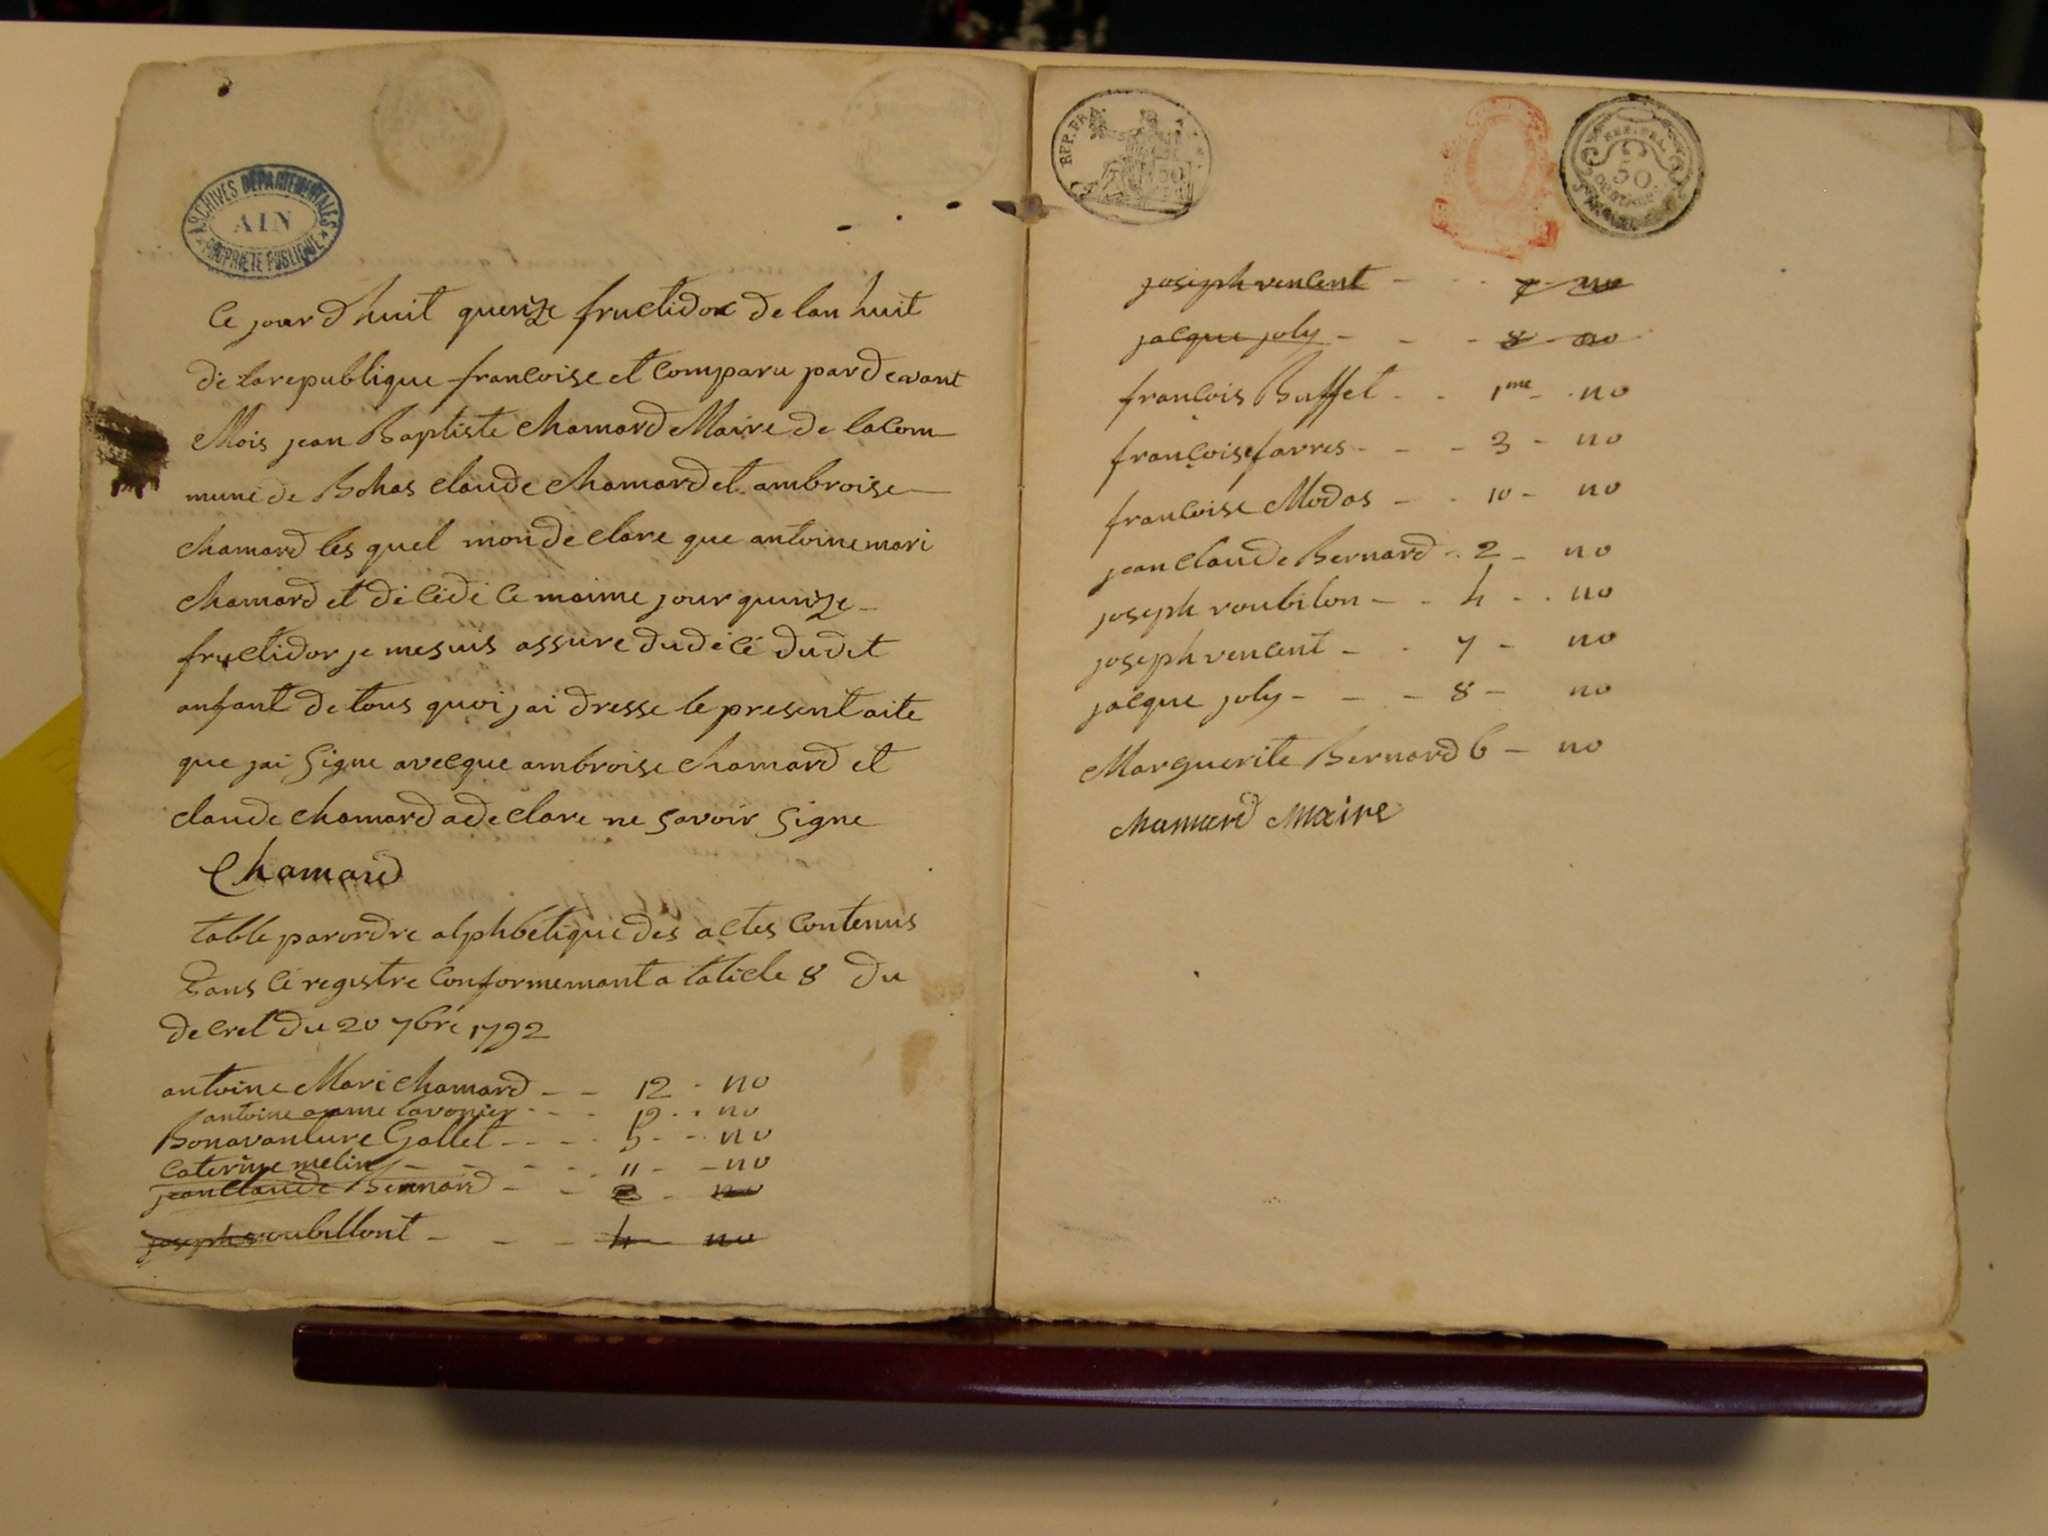 ARCHIVES DÉPARTEMENTALES
AIN
PROPRIÉTÉ PUBLIQUE
Ce jour d huit quenze fructidor de lan huit
de La republique francoise et Comparu par devant
Mois jean Baptiste Chamard Maire de laCom
mune de Bohas Claude Chamard et ambroise
Chamard les quel mon de Clare que antoine mari
Chamard et dé Cédé Ce maime jour quinze
fructidor je me suis assure du dé Cé du dit
anfant de tous quoi jai dresse le present aite
que jai Signe avecque ambroise Chamard et
Claude Chamard a de Clare ne Savoir Signe
Chamard
table par ordre alphbetique des actes Contenus
dans Cé registre Conformemant a laticle 8 du
de Cret du 20 7bre 1792
antoine Mari Chamard - - 12 - no
antoine lavonier - - - 12 - - no
Bonavanture Gallet - - - 5 - - no
Caterine melin - - - 11 - - no
jean Claude Bernard - - 2 - no
joseph roubillont - - - 4 no
REP. FRA
50
REP. FRA.
50
joseph vencent - - - 7 - no
jacque joly - - - 8 - no
francois Buffet - - 1me - no
françoise favres - - - 3 - no
francoise Modas - - 10 - no
jean Claude Bernard - 2 - no
joseph roubilon - - 4 - - no
joseph vencent - - 7 - no
jacque joly - - - 8 - no
Marguerite Bernard 6 - no
Chamard Maire